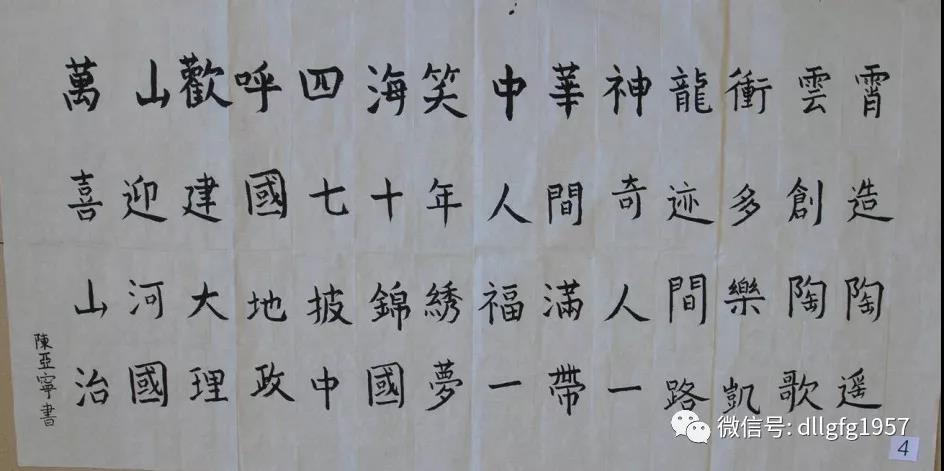 萬山歡呼四海笑中華神龍衝雲霄
喜迎建國七十年人間奇迹多創造
山河大地披錦綉福滿人間樂陶陶
治國理政中國夢一帶一路凱歌遥
陳亞寧書
微信号: dllgfg1957
4